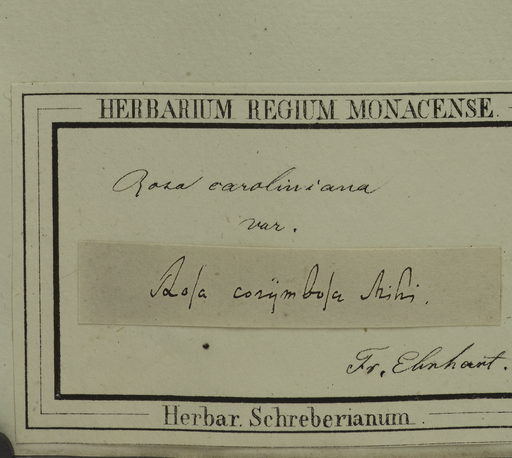 HERBARIUM REGIUM MONACENSE.
Rosa caroliniana
var.
Rosa corÿmbosa Mihi.
Fr. Ehrhart.
Herbar. Schreberianum.